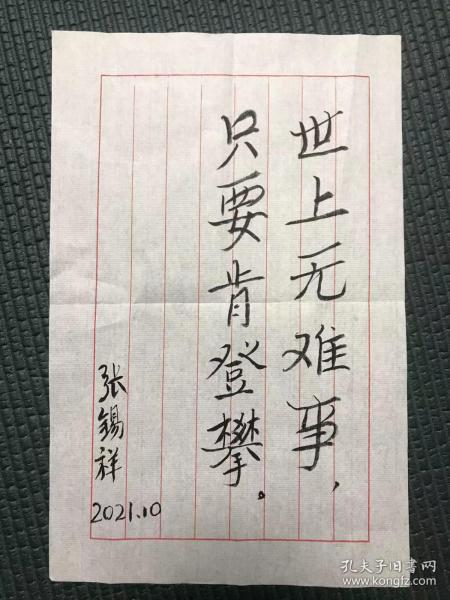 世上无难事，
只要肯登攀。
张锡祥
2021.10
孔夫子旧书网
www.kongfz.com